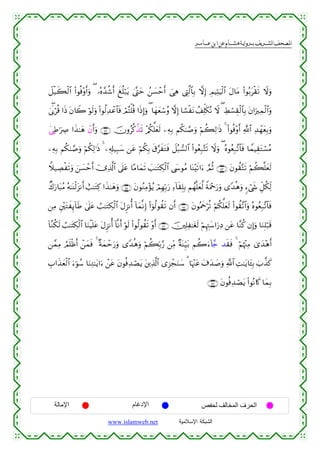 المصحف الشريف برواية هشام عن ابن عامر
وَلَا تَقْرَبُوا۟ مَالَ ٱلْيَتِيمِ إِلَّا بِٱلَّتِى هِىَ أَحْسَنُ حَتَّىٰ يَبْلُغَ أَشُدَّهُۥ ۖ وَأَوْفُوا۟ ٱلْكَيْلَ
وَٱلْمِيزَانَ بِٱلْقِسْطِ ۖ لَا نُكَلِّفُ نَفْسًا إِلَّا وُسْعَهَا ۖ وَإِذَا قُلْتُمْ فَٱعْدِلُوا۟ وَلَوْ كَانَ ذَا قُرْبَىٰ ۖ
وَبِعَهْدِ ٱللَّهِ أَوْفُوا۟ ۚ ذَٰلِكُمْ وَصَّىٰكُم بِهِۦ لَعَلَّكُمْ تَذَّكَّرُونَ وَأَنْ هَٰذَا صِرَٰطِىَ
مُسْتَقِيمًا فَٱتَّبِعُوهُ ۖ وَلَا تَتَّبِعُوا۟ ٱلسُّبُلَ فَتَفَرَّقَ بِكُمْ عَن سَبِيلِهِۦ ۚ ذَٰلِكُمْ وَصَّىٰكُم بِهِۦ
لَعَلَّكُمْ تَتَّقُونَ ثُمَّ ءَاتَيْنَا مُوسَى ٱلْكِتَٰبَ تَمَامًا عَلَى ٱلَّذِىٓ أَحْسَنَ وَتَفْصِيلًا
لِّكُلِّ شَىْءٍ وَهُدًى وَرَحْمَةً لَّعَلَّهُم بِلِقَآءِ رَبِّهِمْ يُؤْمِنُونَ وَهَٰذَا كِتَٰبٌ أَنزَلْنَٰهُ مُبَارَكٌ
فَٱتَّبِعُوهُ وَٱتَّقُوا۟ لَعَلَّكُمْ تُرْحَمُونَ أَن تَقُولُوٓا۟ إِنَّمَآ أُنزِلَ ٱلْكِتَٰبُ عَلَىٰ طَآئِفَتَيْنِ مِن
قَبْلِنَا وَإِن كُنَّا عَن دِرَاسَتِهِمْ لَغَٰفِلِينَ أَوْ تَقُولُوا۟ لَوْ أَنَّآ أُنزِلَ عَلَيْنَا ٱلْكِتَٰبُ لَكُنَّآ
أَهْدَىٰ مِنْهُمْ ۚ فَقَد جَّآءَكُم بَيِّنَةٌ مِّن رَّبِّكُمْ وَهُدًى وَرَحْمَةٌ ۚ فَمَنْ أَظْلَمُ مِمَّن
كَذَّبَ بِـَٔايَٰتِ ٱللَّهِ وَصَدَفَ عَنْهَا ۗ سَنَجْزِى ٱلَّذِينَ يَصْدِفُونَ عَنْ ءَايَٰتِنَا سُوٓءَ ٱلْعَذَابِ
بِمَا كَانُوا۟ يَصْدِفُونَ
الحرف المخالف لحفص الإدغام الإمالة
الشبكة الإسلامية www.islamweb.net